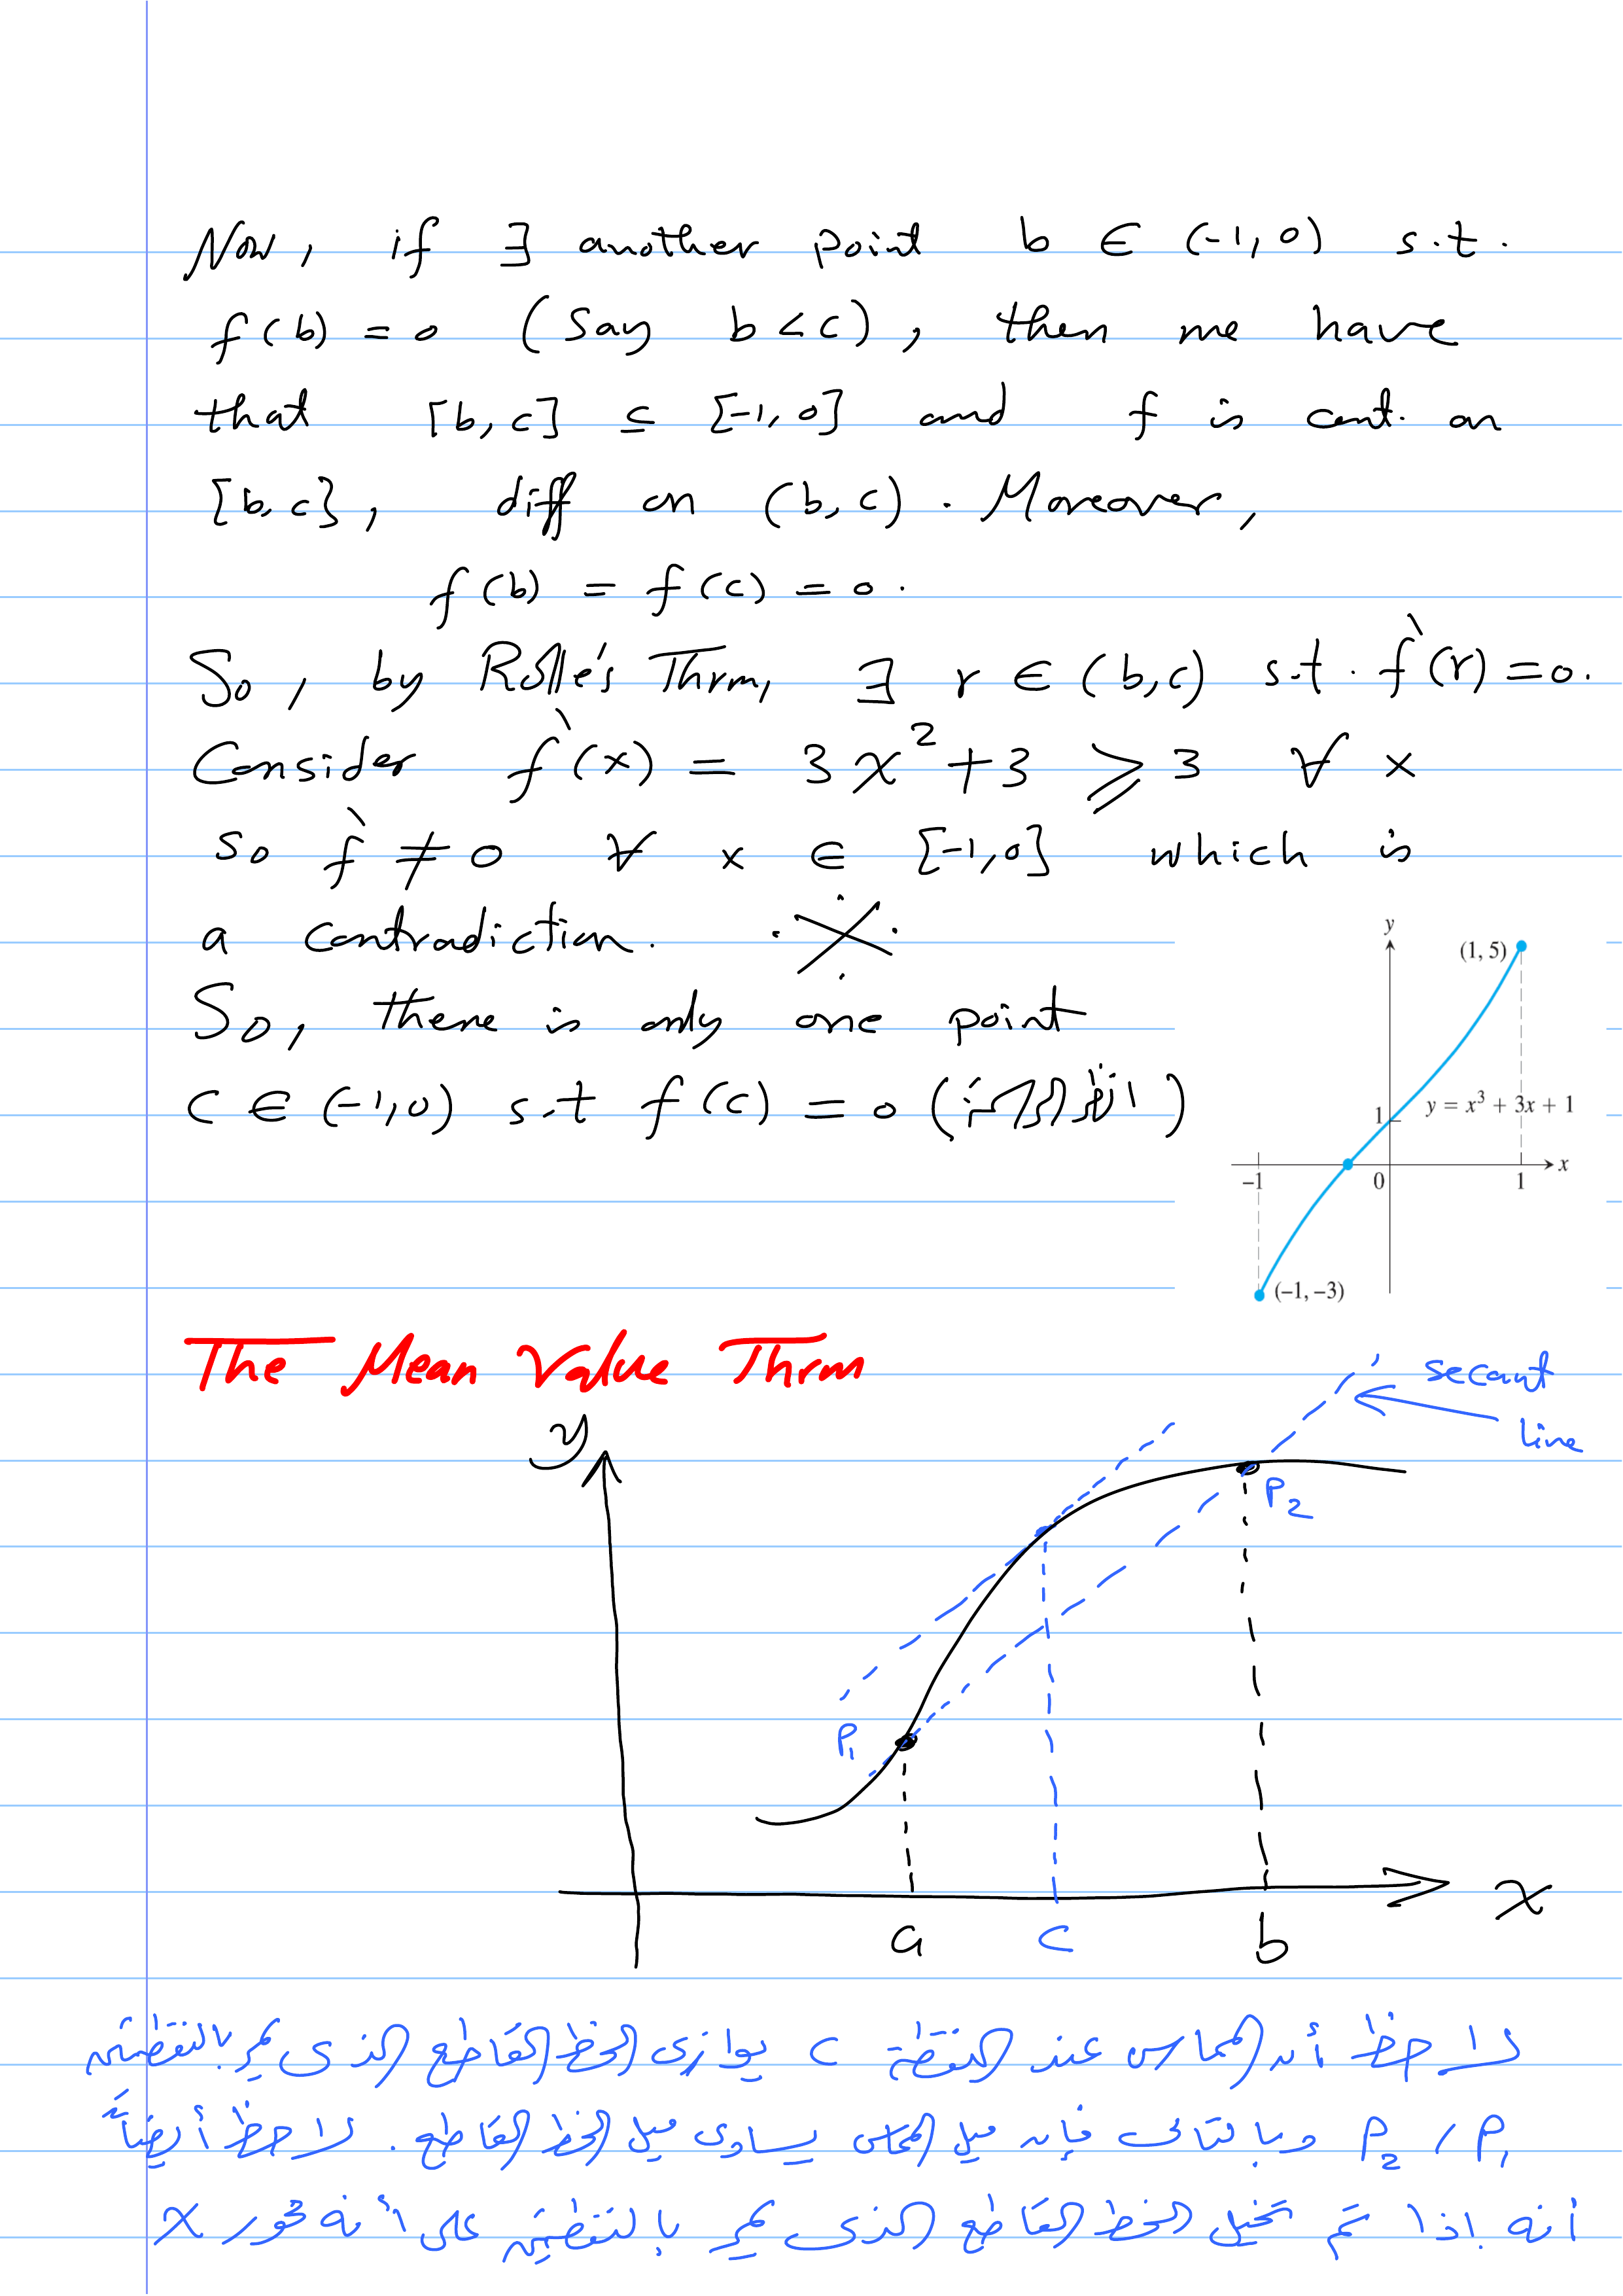 Now, if ∃ another point b ∈ (-1, 0) s.t.
f(b) = 0 (say b < c), then we have
that [b, c] ⊆ [-1, 0] and f is cont. on
[b, c], diff on (b, c). Moreover,
f(b) = f(c) = 0.
So, by Rolle's Thrm, ∃ r ∈ (b, c) s.t. f̀(r) = 0.
Consider f̀(x) = 3x² + 3 ⩾ 3 ∀ x
so f̀ ≠ 0 ∀ x ∈ [-1, 0] which is
a contradiction.
So, there is only one point
c ∈ (-1, 0) s.t f(c) = 0
y
(1, 5)
1
y = x³ + 3x + 1
-1
0
1
x
(−1, −3)
The Mean Value Thrm
secant
line
y
P₂
P₁
x
a
c
b
لاحظ أن المماس عند النقطة c يوازى الخط القاطع الذى يمر بالنقطتين
P₁ , P₂ وبالتالى فإن ميل المماس يساوى ميل الخط القاطع. لاحظ أيضاً
أنه إذا تم تخيل الخط القاطع الذى يمر بالنقطتين على أنه محور x